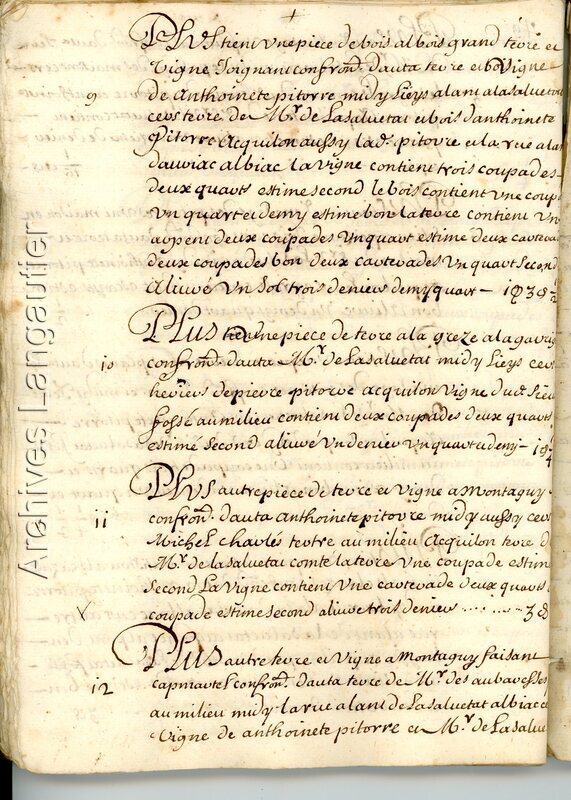 +
PLUS tient une piece de bois al bois grand terre et
Vigne Joignant confron. dauta terre et Vigne
9 de Anthoinete pitorre midy Lieys alant alasaluetat
cers terre de Mr. de Lasaluetat et bois danthoinete
Pitorre Acquilon aussy lad. pitorre et la rue alan
dauriac albiac la Vigne contient trois coupades
deux quarts estime second le bois contient Une coup
Un quart et demy estime bon la terre contient Un
arpent deux coupades Un quart estimé deux carterad
deux coupades bon deux carterades Un quart Second
aliuré Un Sol trois deniers demy quart — 1s 3d
PLUS tient Une piece de terre ala greze ala
10 confron. dauta Mr. de Lasaluetat midy Lieys cers
heritiers de pierre pitorre acquilon Vigne dud. Sieur
fossé au milieu contient deux coupades deux quarts
estimé second aliuré Un denier Un quart et demy — 1d
PLUS autre piece de terre et Vigne a Montaguy
11 confron. dauta anthoinete pitorre midy aussy cers
Michel Charles tertre au milieu Acquilon terre d
Mr. de lasaluetat comté la terre Une coupade estim
Second La Vigne contient Une carterade deux quarts
coupade estimé second aliuré trois deniers ...... 3d
PLUS autre terre et Vigne a Montaguy faisant
12 capmartel confron. dauta terre de Mr. des aubaresses
au milieu midy la rue alant de Lasaluetat albiac ce
Vigne de anthoinete pitorre et Mr. de Lasalue
Archives Langautier